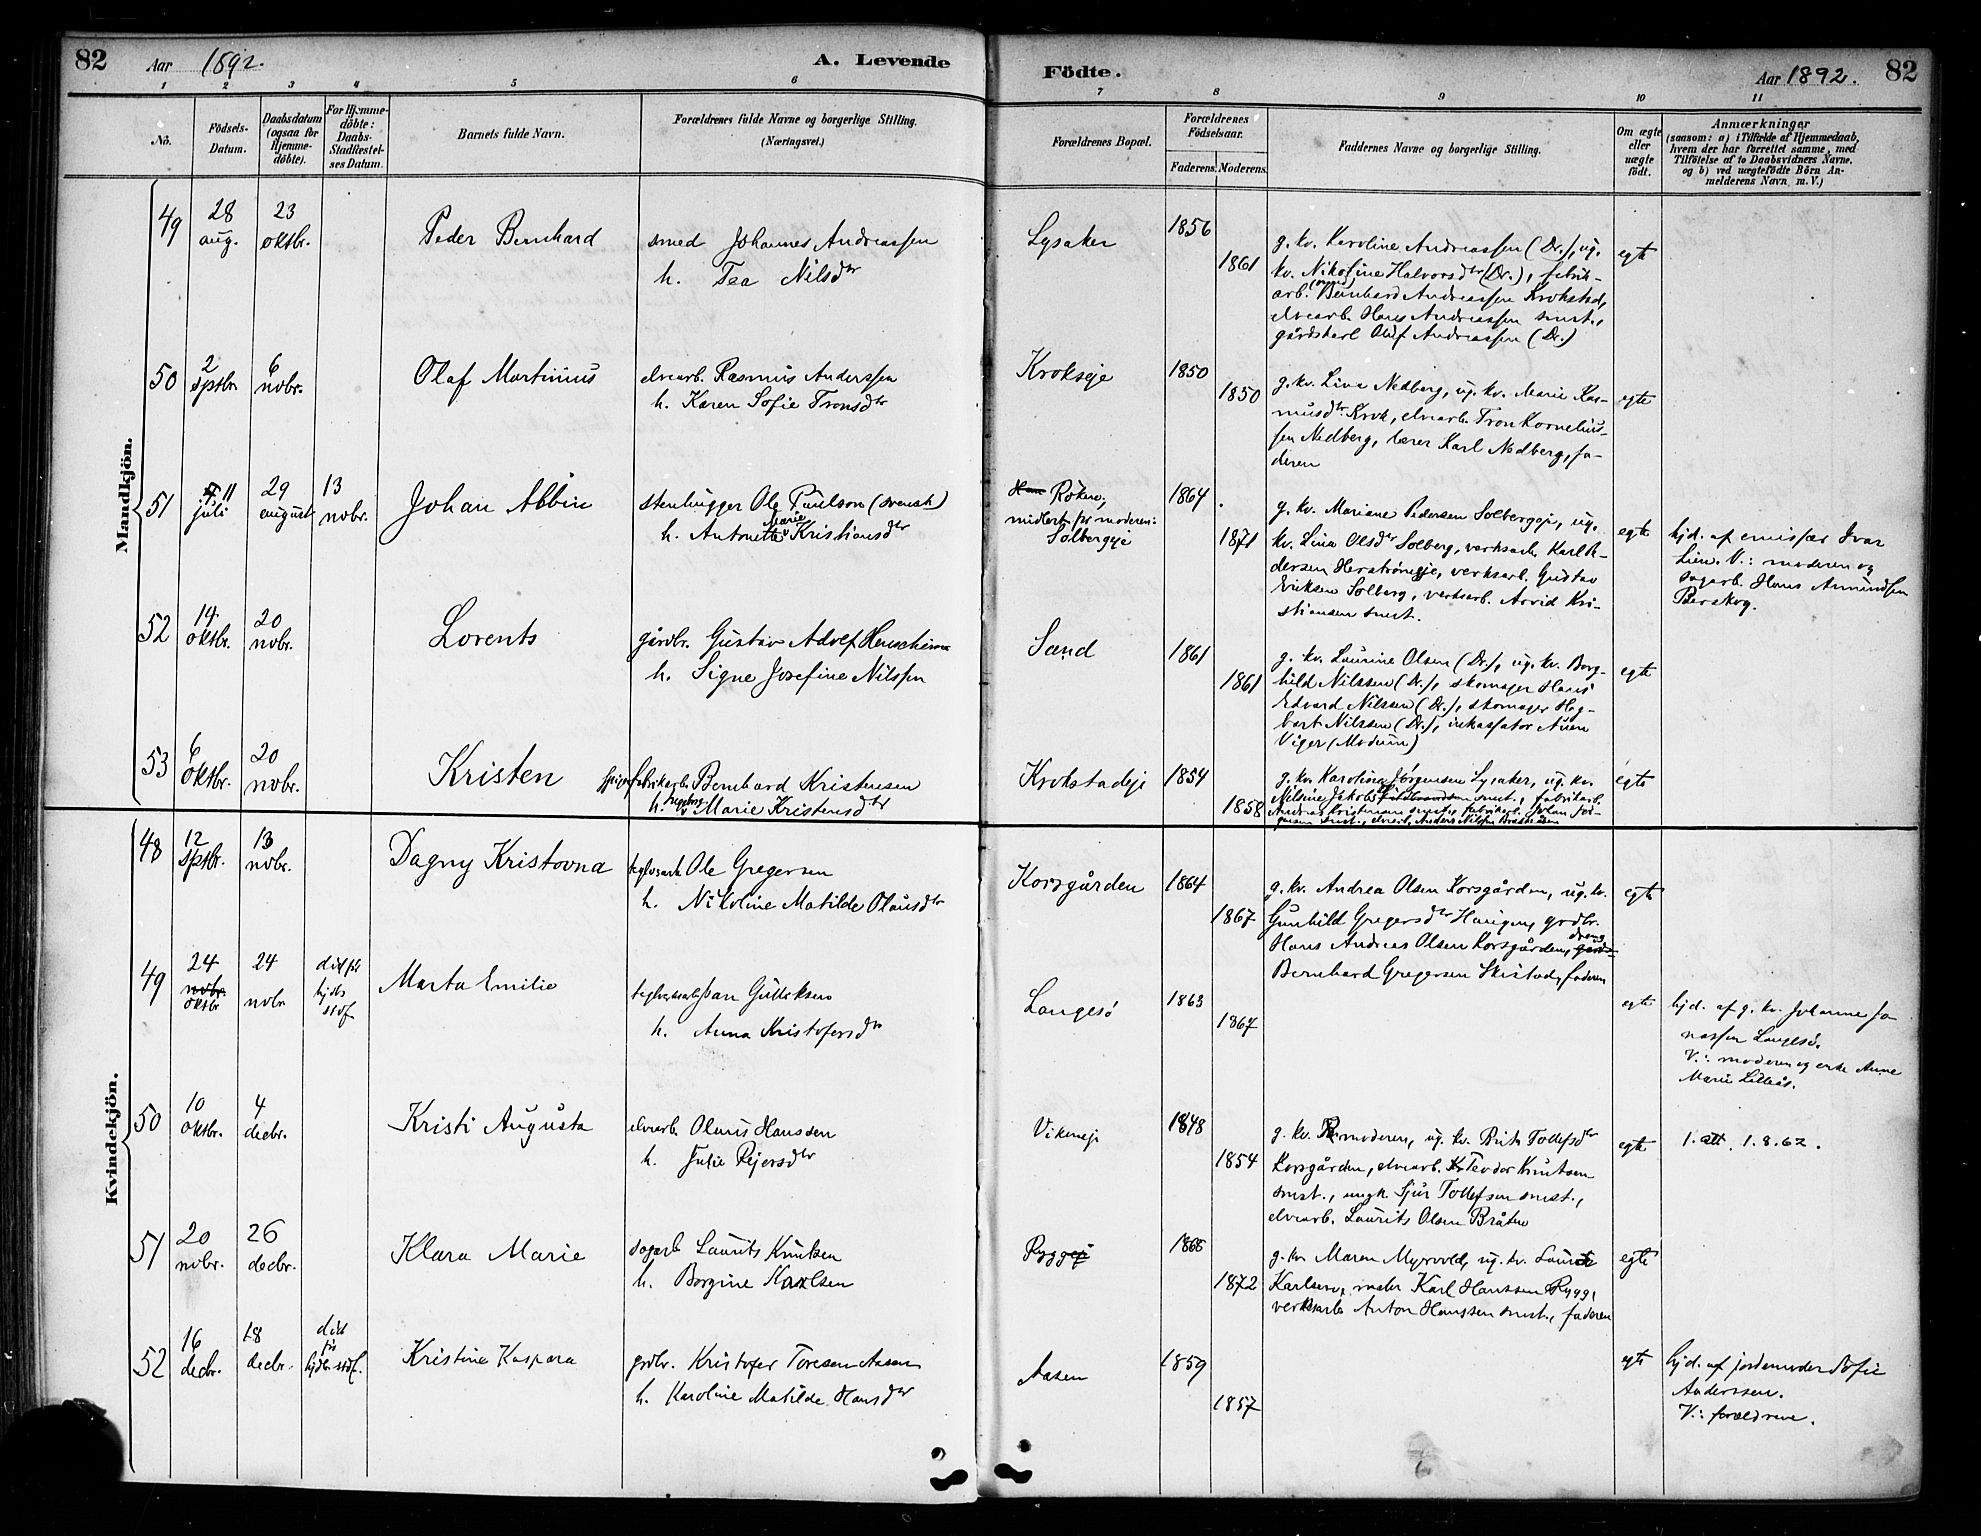 82 Aar 1892. A. Levende
Födte. Aar 1892. 82
1 2 3 4 5 6 7 8 9 10 11
No.
Födsels-
Datum.
Daabsdatum
(ogsaa for
Hjemme-
döbte).
For Hjemme-
döbte:
Daabs-
Stadfæstel-
ses Datum.
Barnets fulde Navn.
Forældrenes fulde Navne og borgerlige Stilling.
(Næringsvei.)
Forældrenes Bopæl.
Forældrenes
Födselsaar.
Faderens. Moderens.
Faddernes Navne og borgerlige Stilling.
Om ægte
eller
uægte
födt.
Anmærkninger
(saasom: a) i Tilfælde af Hjemmedaab,
hvem der har forrettet samme, med
Tilföielse af to Daabsvidners Navne.
og b) ved uægtefödte Börn An-
melderens Navn m. V.)
Mandkjön.
49
28
aug.
23
oktbr.
Peder Bernhard
smed Johannes Andreassen
h. Tea Nilsdtr
Lysaker
1856
1861
g. kv. Karoline Andreassen (Dr.), ug.
kv. Nikoline Halvorsdtr (Dr.), fabrik-
arb. Bernhard Andreassen Krokstad,
elvearb. Hans Andreassen smst.,
gårdskarl Oluf Andreassen (Dr.)
egte
50
2
sptbr.
6
novbr.
Olaf Martinius
elvearb. Rasmus Anderssen
h. Karen Sofie Tronsdtr
Krokseje
1850
1850
g. kv. Lina Nedberg, ug. kv. Marie Ras-
musdtr. Krok, elvearb. Tron Kornelius-
sen Nedberg, lærer Karl Nedberg, fa-
deren
egte
51
11
juli
29
august
13
novbr.
Johan Albin
stenhugger Ole Paulson (svensk)
h. Antonette Marie Kristiansdtr
Röken,
midlert. for moderen:
Solbergeje
1864
1871
g. kv. Mariane Pedersen Solbergeje, ug.
kv. Lina Olsdtr Solberg, verksarb. Karl Pe-
dersen Herstrømeje, verksarb. Gustav
Eriksen Solberg, verksarb. Arvid Kri-
stiansen smst.
egte
hjd. af emissær Ivar
Lien. V.: moderen og
sagarb. Hans Amundsen
Berskog.
52
14
oktbr.
20
novbr.
Lorents
gårdbr. Gustav Adolf
h. Signe Josefine Nilssen
Sand
1861
1861
g. kv. Laurine Olsen (Dr.), ug. kv. Borg-
hild Nilssen (Dr.), skomager Hans
Edvard Nilssen (Dr.), skomager Hag-
bart Nilssen (Dr.), inkassator
Viger (Modum)
egte
53
6
oktbr.
20
novbr.
Kristen
spigerfabrikarb. Bernhard Kristensen
h. Ingeborg Marie Kristensdtr
Krokstadeje
1854
1858
g. kv. Karoline Jørgensen Lysaker, ug. kv.
Nilsine Jakobs smst., fabrikarb.
Andreas Kristensen smst., fabrikarb. Johan Jör-
gensen smst., elvearb. Anders Nilssen
egte
Kvindekjön.
48
12
sptbr.
13
novbr.
Dagny Kristovna
teglverksarb. Ole Gregersen
h. Nikoline Matilde Olausdtr
Korsgården
1864
1867
g. kv. Andrea Olsen Korsgården, ug. kv.
Gunhild Gregersdtr Haugen, grdbr.
Hans Andreas Olsen Korsgården, dreng
Bernhard Gregersen Skistad, faderen
egte
49
24
novbr.
oktbr
24
novbr
död för
hjds
stdf
Marta Emilie
teglverksarb. Ivar Gulliksen
h. Anna Kristofersdtr
Langesö
1863
1867
egte
hjd. af g. kv. Johanne Jo-
nassen Langesö.
V.: moderen og enke Anne
Marie Lilleås.
50
10
oktbr.
4
decbr.
Kristi Augusta
elvearb. Olaus Hanssen
h. Julie Rejersdtr
Vikeneje
1848
1854
g. kv. moderen, ug. kv. Brit Tollefsdtr
Korsgården, elvearb. Teodor Knutsen
smst., ungk. Sjur Tollefsen smst.,
elvearb. Laurits Olsen Bråten
egte
1. att. 1.8.62.
51
20
novbr.
26
decbr.
Klara Marie
sagarb Laurits Knutsen
h. Borgine Karlsen
Ryggeje
1866
1872
g. kv. Maren Myrvold, ug. kv. Laura
Karlsen, maler Karl Hanssen Rygg,
verksarb. Anton Hanssen smst., faderen
egte
52
16
decbr.
18
decbr.
död
för
hjdbs stdf.
Kristine Kaspara
grdbr. Kristofer Toresen Aasen
h. Karoline Matilde Hansdtr
Aasen
1859
1857
egte
hjd. af jordemoder Sofie
Anderssen.
V.: forældrene.